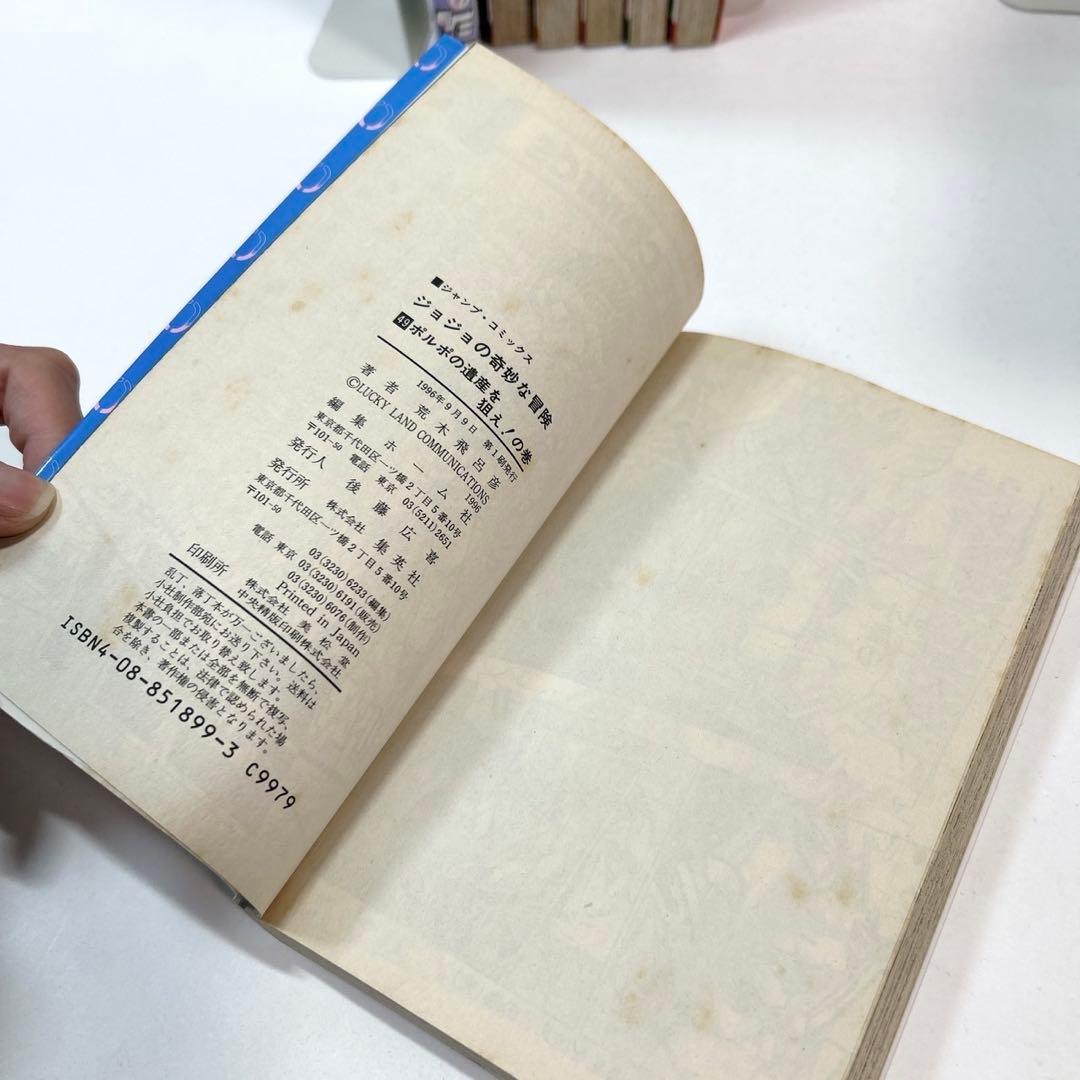 ■ジャンプ・コミックス
ジョジョの奇妙な冒険
49ポルポの遺産を
狙え!の巻
1996年9月9日 第1刷発行
著者 荒木飛呂彦
©LUCKY LAND COMMUNICATIONS 1996
編集 ホーム社
東京都千代田区一ツ橋2丁目5番10号
〒101-50 電話 東京 03(5211)2651
発行人 後藤広喜
発行所 株式会社 集英社
東京都千代田区一ツ橋2丁目5番10号
〒101-50
03(3230)6233(編集)
電話 東京 03(3230)6191(販売)
03(3230)6076(制作)
Printed in Japan
印刷所 株式会社 美松堂
中央精版印刷株式会社
乱丁、落丁本が万一ございましたら、
小社制作部宛にお送り下さい。送料は
小社負担でお取り替え致します。
本書の一部または全部を無断で複写、
複製することは、法律で認められた場
合を除き、著作権の侵害となります。
ISBN4-08-851899-3 C9979